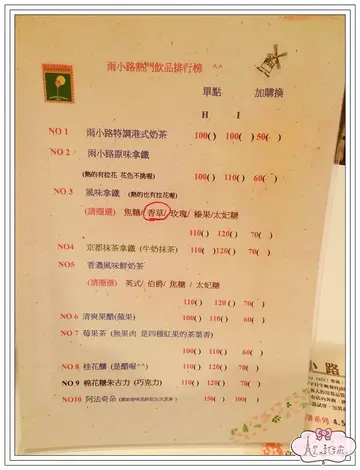 雨小路熱門飲品排行榜 ^^
單點 加購換
H I
NO 1 雨小路特調港式奶茶 100( ) 100( ) 50( )
NO 2 雨小路原味拿鐵
(熱的有拉花 花色不挑喔) 100( ) 110( ) 60( )
NO 3 風味拿鐵 (熱的也有拉花喔)
(請圈選) 焦糖/ 香草/ 玫瑰/ 榛果/太妃糖
110( ) 120( ) 70( )
NO4 京都抹茶拿鐵 (牛奶抹茶) 110( ) 120( ) 70( )
NO5 香濃風味鮮奶茶
(請圈選) 英式/ 伯爵/ 焦糖 / 太妃糖
110( ) 120( ) 70( )
NO 6 清爽果醋(蘋果) 100( ) 110( ) 60( )
NO 7 莓果茶 (無果肉 是四種紅果的茶葉香)
100( ) 110( ) 60( )
NO 8 桂花釀 (是醋喔^^) 110( ) 120( ) 70( )
NO 9 棉花糖朱古力 (巧克力) 110( ) 120( ) 70( )
NO10 阿法奇朵 100( )
小路